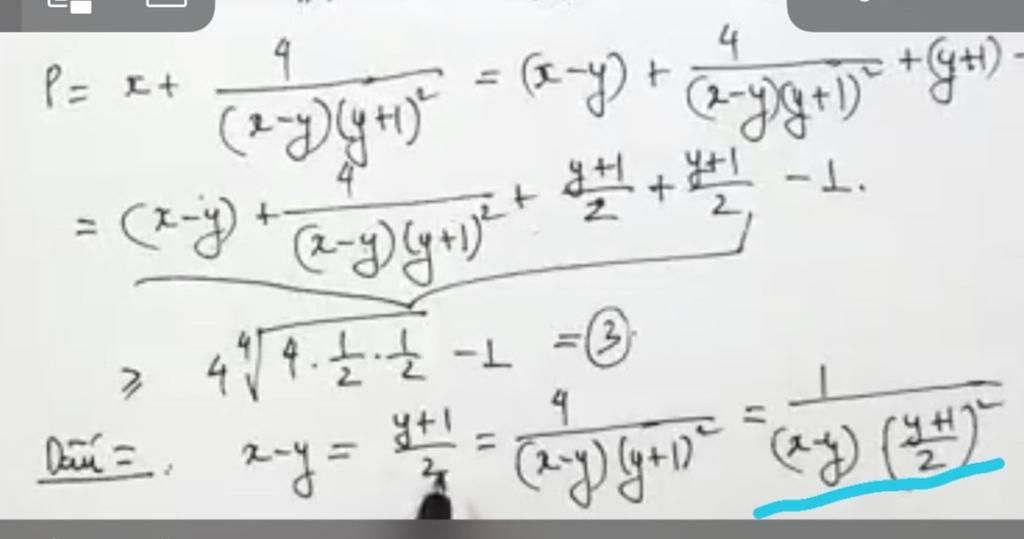 P = x + 4/((x-y)(y+1)²) = (x-y) + 4/((x-y)(y+1))² + (y+1) -
= (x-y) + 4/((x-y)(y+1)²) + (y+1)/2 + (y+1)/2 - 1.
≥ 4∜(4·1/2·1/2) - 1 = ③.
Dấu =. x-y = (y+1)/2 = 4/((x-y)(y+1)²) = 1/((x-y)((y+1)/2)²)